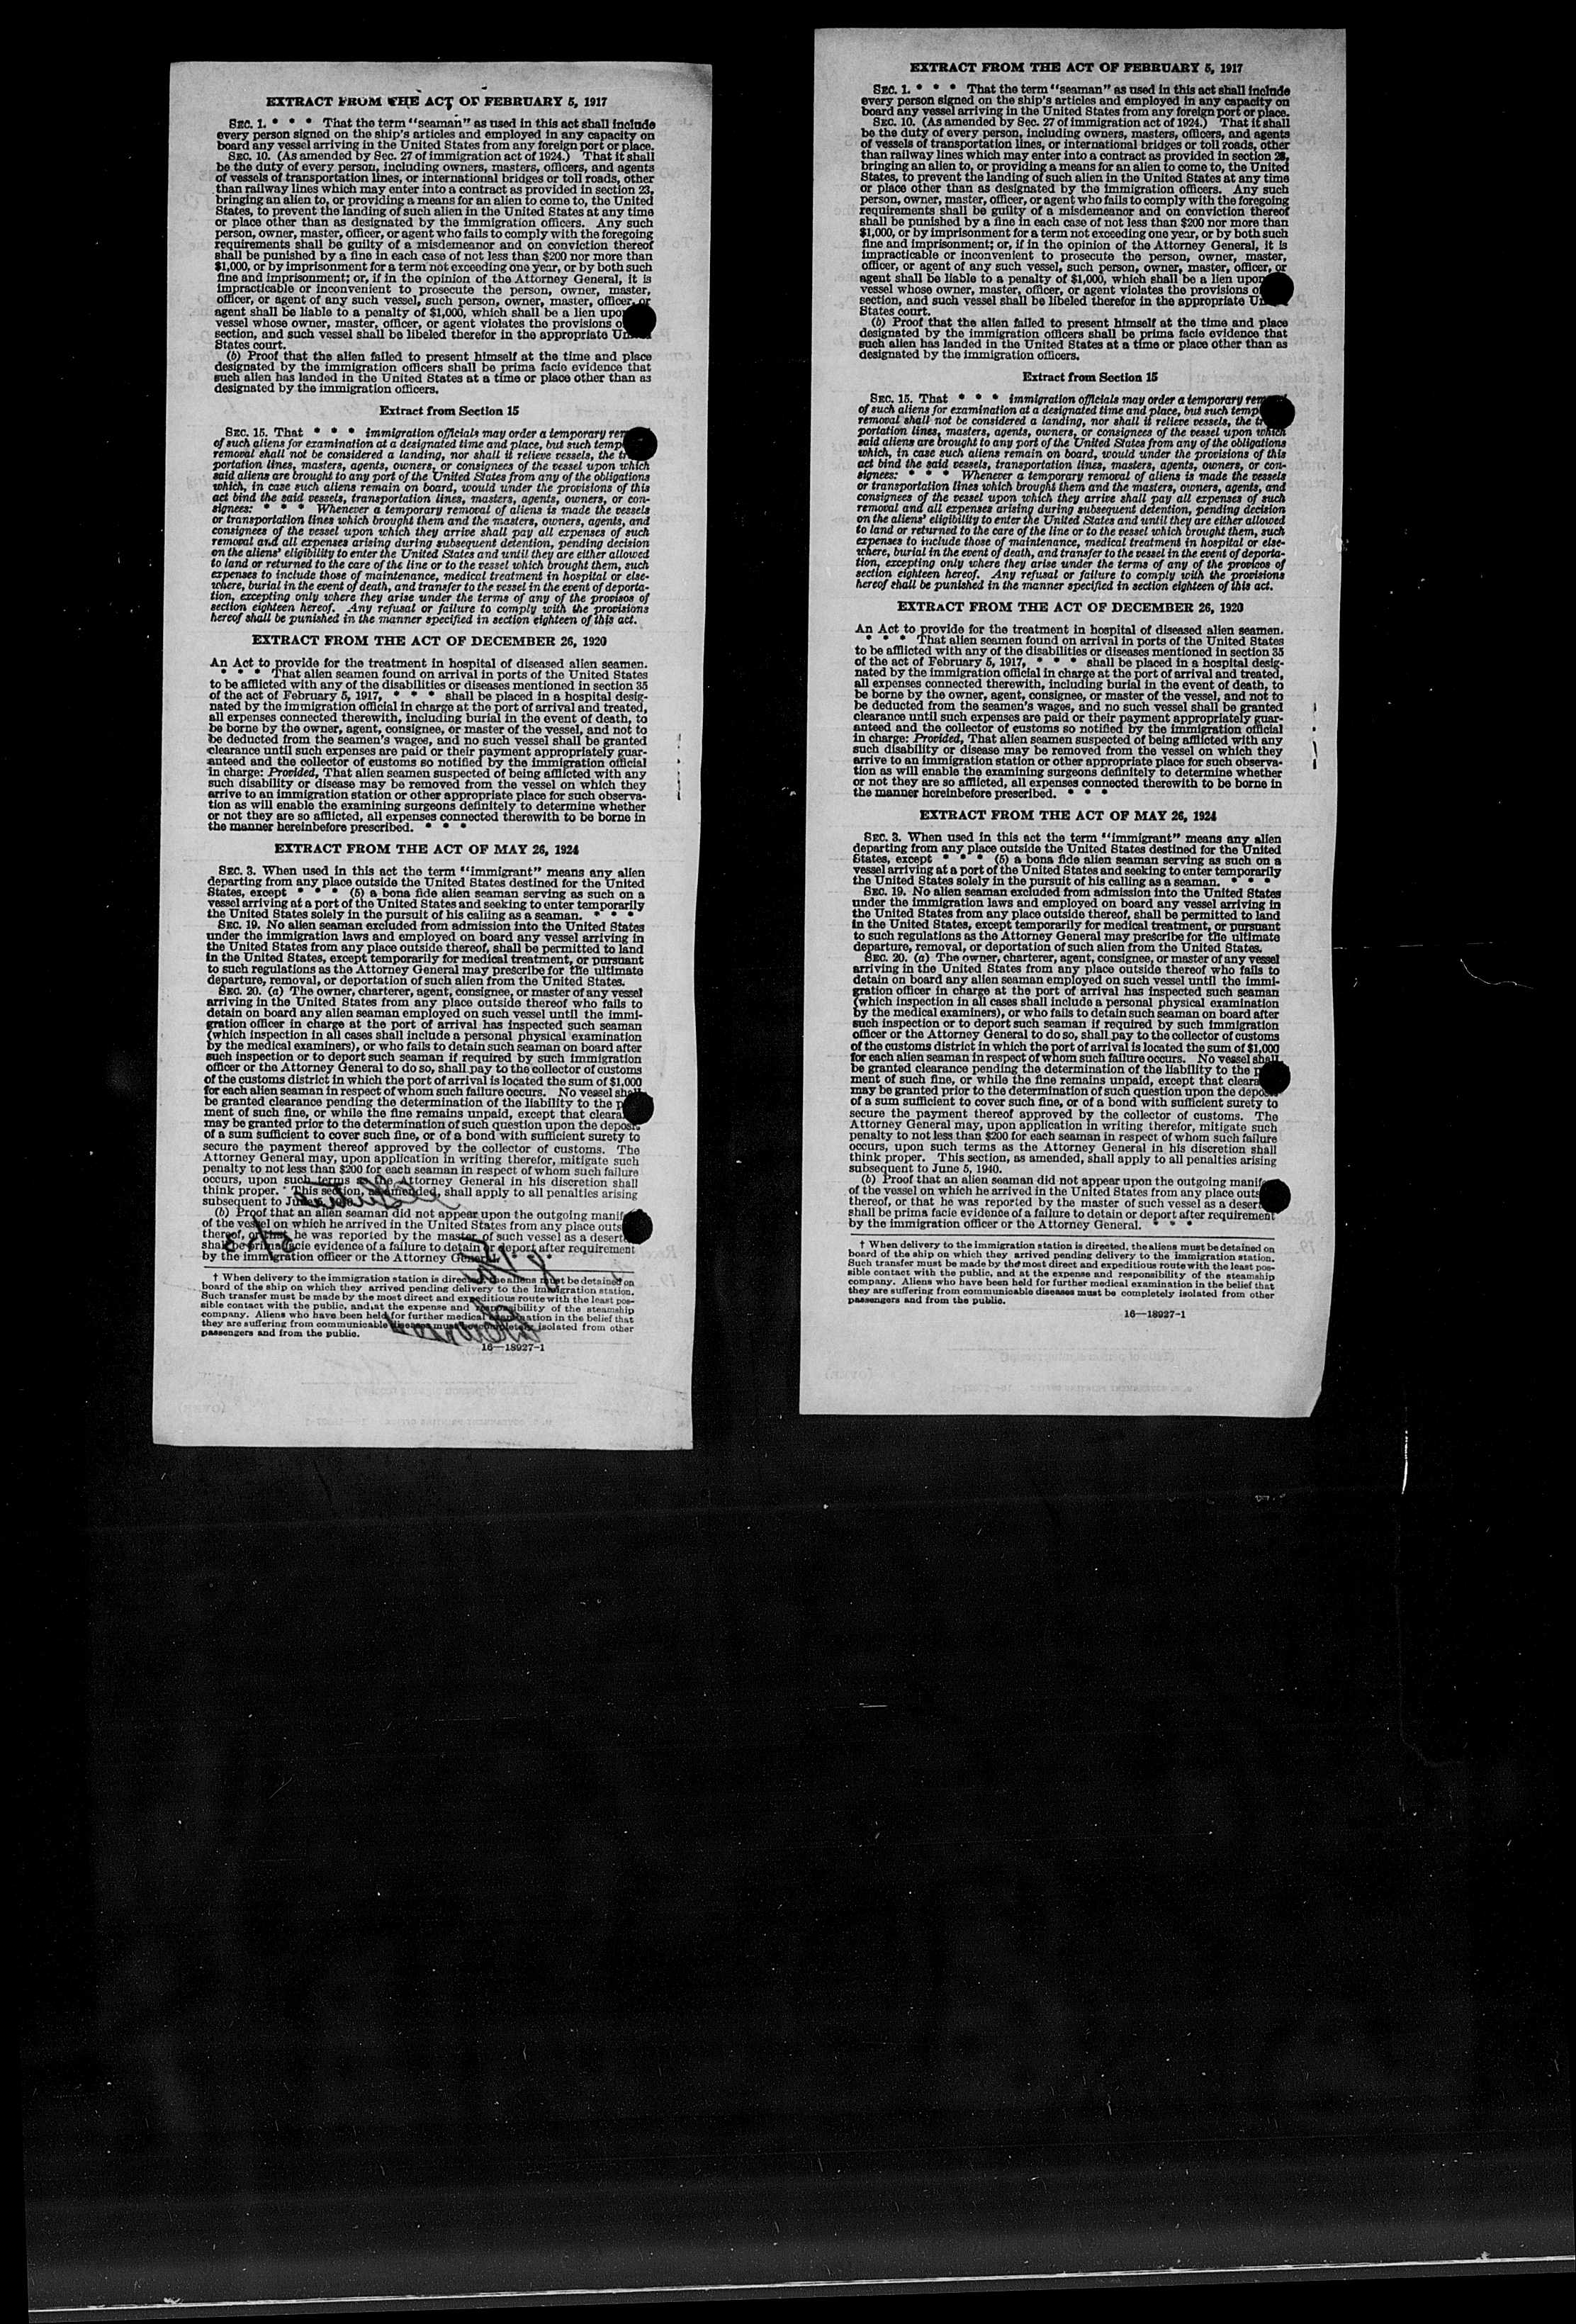 EXTRACT FROM THE ACT OF FEBRUARY 5, 1917
SEC. 1. * * * That the term "seaman" as used in this act shall include
every person signed on the ship's articles and employed in any capacity on
board any vessel arriving in the United States from any foreign port or place.
SEC. 10. (As amended by Sec. 27 of immigration act of 1924.) That it shall
be the duty of every person, including owners, masters, officers, and agents
of vessels of transportation lines, or international bridges or toll roads, other
than railway lines which may enter into a contract as provided in section 23,
bringing an alien to, or providing a means for an alien to come to, the United
States, to prevent the landing of such alien in the United States at any time
or place other than as designated by the immigration officers. Any such
person, owner, master, officer, or agent who fails to comply with the foregoing
requirements shall be guilty of a misdemeanor and on conviction thereof
shall be punished by a fine in each case of not less than $200 nor more than
$1,000, or by imprisonment for a term not exceeding one year, or by both such
fine and imprisonment; or, if in the opinion of the Attorney General, it is
impracticable or inconvenient to prosecute the person, owner, master,
officer, or agent of any such vessel, such person, owner, master, officer, or
agent shall be liable to a penalty of $1,000, which shall be a lien upon
vessel whose owner, master, officer, or agent violates the provisions
section, and such vessel shall be libeled therefor in the appropriate
States court.
(b) Proof that the alien failed to present himself at the time and place
designated by the immigration officers shall be prima facie evidence that
such alien has landed in the United States at a time or place other than as
designated by the immigration officers.
Extract from Section 15
SEC. 15. That * * * immigration officials may order a temporary
of such aliens for examination at a designated time and place, but such
removal shall not be considered a landing, nor shall it relieve vessels, the
portation lines, masters, agents, owners, or consignees of the vessel upon which
said aliens are brought to any port of the United States from any of the obligations
which, in case such aliens remain on board, would under the provisions of this
act bind the said vessels, transportation lines, masters, agents, owners, or con-
signees: * * * Whenever a temporary removal of aliens is made the vessels
or transportation lines which brought them and the masters, owners, agents, and
consignees of the vessel upon which they arrive shall pay all expenses of such
removal and all expenses arising during subsequent detention, pending decision
on the aliens' eligibility to enter the United States and until they are either allowed
to land or returned to the care of the line or to the vessel which brought them, such
expenses to include those of maintenance, medical treatment in hospital or else-
where, burial in the event of death, and transfer to the vessel in the event of deporta-
tion, excepting only where they arise under the terms of any of the provisos of
section eighteen hereof. Any refusal or failure to comply with the provisions
hereof shall be punished in the manner specified in section eighteen of this act.
EXTRACT FROM THE ACT OF DECEMBER 26, 1920
An Act to provide for the treatment in hospital of diseased alien seamen.
* * * That alien seamen found on arrival in ports of the United States
to be afflicted with any of the disabilities or diseases mentioned in section 35
of the act of February 5, 1917, * * * shall be placed in a hospital desig-
nated by the immigration official in charge at the port of arrival and treated,
all expenses connected therewith, including burial in the event of death, to
be borne by the owner, agent, consignee, or master of the vessel, and not to
be deducted from the seamen's wages, and no such vessel shall be granted
clearance until such expenses are paid or their payment appropriately guar-
anteed and the collector of customs so notified by the immigration official
in charge: Provided, That alien seamen suspected of being afflicted with any
such disability or disease may be removed from the vessel on which they
arrive to an immigration station or other appropriate place for such observa-
tion as will enable the examining surgeons definitely to determine whether
or not they are so afflicted, all expenses connected therewith to be borne in
the manner hereinbefore prescribed. * * *
EXTRACT FROM THE ACT OF MAY 26, 1924
SEC. 3. When used in this act the term "immigrant" means any alien
departing from any place outside the United States destined for the United
States, except * * * (5) a bona fide alien seaman serving as such on a
vessel arriving at a port of the United States and seeking to enter temporarily
the United States solely in the pursuit of his calling as a seaman. * * *
SEC. 19. No alien seaman excluded from admission into the United States
under the immigration laws and employed on board any vessel arriving in
the United States from any place outside thereof, shall be permitted to land
in the United States, except temporarily for medical treatment, or pursuant
to such regulations as the Attorney General may prescribe for the ultimate
departure, removal, or deportation of such alien from the United States.
SEC. 20. (a) The owner, charterer, agent, consignee, or master of any vessel
arriving in the United States from any place outside thereof who fails to
detain on board any alien seaman employed on such vessel until the immi-
gration officer in charge at the port of arrival has inspected such seaman
(which inspection in all cases shall include a personal physical examination
by the medical examiners), or who fails to detain such seaman on board after
such inspection or to deport such seaman if required by such immigration
officer or the Attorney General to do so, shall pay to the collector of customs
of the customs district in which the port of arrival is located the sum of $1,000
for each alien seaman in respect of whom such failure occurs. No vessel shall
be granted clearance pending the determination of the liability to the
ment of such fine, or while the fine remains unpaid, except that
may be granted prior to the determination of such question upon the deposit
of a sum sufficient to cover such fine, or of a bond with sufficient surety to
secure the payment thereof approved by the collector of customs. The
Attorney General may, upon application in writing therefor, mitigate such
penalty to not less than $200 for each seaman in respect of whom such failure
occurs, upon such terms as the Attorney General in his discretion shall
think proper. This section, as amended, shall apply to all penalties arising
subsequent to
(b) Proof that an alien seaman did not appear upon the outgoing
of the vessel on which he arrived in the United States from any place
thereof, or that he was reported by the master of such vessel as a
shall be prima facie evidence of a failure to detain or deport after requirement
by the immigration officer or the Attorney General.
† When delivery to the immigration station is directed, the aliens must be detained on
board of the ship on which they arrived pending delivery to the immigration station.
Such transfer must be made by the most direct and expeditious route with the least pos-
sible contact with the public, and at the expense and responsibility of the steamship
company. Aliens who have been held for further medical examination in the belief that
they are suffering from communicable diseases must be completely isolated from other
passengers and from the public.
16—18927-1
EXTRACT FROM THE ACT OF FEBRUARY 5, 1917
SEC. 1. * * * That the term "seaman" as used in this act shall include
every person signed on the ship's articles and employed in any capacity on
board any vessel arriving in the United States from any foreign port or place.
SEC. 10. (As amended by Sec. 27 of immigration act of 1924.) That it shall
be the duty of every person, including owners, masters, officers, and agents
of vessels of transportation lines, or international bridges or toll roads, other
than railway lines which may enter into a contract as provided in section 23,
bringing an alien to, or providing a means for an alien to come to, the United
States, to prevent the landing of such alien in the United States at any time
or place other than as designated by the immigration officers. Any such
person, owner, master, officer, or agent who fails to comply with the foregoing
requirements shall be guilty of a misdemeanor and on conviction thereof
shall be punished by a fine in each case of not less than $200 nor more than
$1,000, or by imprisonment for a term not exceeding one year, or by both such
fine and imprisonment; or, if in the opinion of the Attorney General, it is
impracticable or inconvenient to prosecute the person, owner, master,
officer, or agent of any such vessel, such person, owner, master, officer, or
agent shall be liable to a penalty of $1,000, which shall be a lien upon
vessel whose owner, master, officer, or agent violates the provisions
section, and such vessel shall be libeled therefor in the appropriate
States court.
(b) Proof that the alien failed to present himself at the time and place
designated by the immigration officers shall be prima facie evidence that
such alien has landed in the United States at a time or place other than as
designated by the immigration officers.
Extract from Section 15
SEC. 15. That * * * immigration officials may order a temporary
of such aliens for examination at a designated time and place, but such
removal shall not be considered a landing, nor shall it relieve vessels, the
portation lines, masters, agents, owners, or consignees of the vessel upon which
said aliens are brought to any port of the United States from any of the obligations
which, in case such aliens remain on board, would under the provisions of this
act bind the said vessels, transportation lines, masters, agents, owners, or con-
signees: * * * Whenever a temporary removal of aliens is made the vessels
or transportation lines which brought them and the masters, owners, agents, and
consignees of the vessel upon which they arrive shall pay all expenses of such
removal and all expenses arising during subsequent detention, pending decision
on the aliens' eligibility to enter the United States and until they are either allowed
to land or returned to the care of the line or to the vessel which brought them, such
expenses to include those of maintenance, medical treatment in hospital or else-
where, burial in the event of death, and transfer to the vessel in the event of deporta-
tion, excepting only where they arise under the terms of any of the provisos of
section eighteen hereof. Any refusal or failure to comply with the provisions
hereof shall be punished in the manner specified in section eighteen of this act.
EXTRACT FROM THE ACT OF DECEMBER 26, 1920
An Act to provide for the treatment in hospital of diseased alien seamen.
* * * That alien seamen found on arrival in ports of the United States
to be afflicted with any of the disabilities or diseases mentioned in section 35
of the act of February 5, 1917, * * * shall be placed in a hospital desig-
nated by the immigration official in charge at the port of arrival and treated,
all expenses connected therewith, including burial in the event of death, to
be borne by the owner, agent, consignee, or master of the vessel, and not to
be deducted from the seamen's wages, and no such vessel shall be granted
clearance until such expenses are paid or their payment appropriately guar-
anteed and the collector of customs so notified by the immigration official
in charge: Provided, That alien seamen suspected of being afflicted with any
such disability or disease may be removed from the vessel on which they
arrive to an immigration station or other appropriate place for such observa-
tion as will enable the examining surgeons definitely to determine whether
or not they are so afflicted, all expenses connected therewith to be borne in
the manner hereinbefore prescribed. * * *
EXTRACT FROM THE ACT OF MAY 26, 1924
SEC. 3. When used in this act the term "immigrant" means any alien
departing from any place outside the United States destined for the United
States, except * * * (5) a bona fide alien seaman serving as such on a
vessel arriving at a port of the United States and seeking to enter temporarily
the United States solely in the pursuit of his calling as a seaman. * * *
SEC. 19. No alien seaman excluded from admission into the United States
under the immigration laws and employed on board any vessel arriving in
the United States from any place outside thereof, shall be permitted to land
in the United States, except temporarily for medical treatment, or pursuant
to such regulations as the Attorney General may prescribe for the ultimate
departure, removal, or deportation of such alien from the United States.
SEC. 20. (a) The owner, charterer, agent, consignee, or master of any vessel
arriving in the United States from any place outside thereof who fails to
detain on board any alien seaman employed on such vessel until the immi-
gration officer in charge at the port of arrival has inspected such seaman
(which inspection in all cases shall include a personal physical examination
by the medical examiners), or who fails to detain such seaman on board after
such inspection or to deport such seaman if required by such immigration
officer or the Attorney General to do so, shall pay to the collector of customs
of the customs district in which the port of arrival is located the sum of $1,000
for each alien seaman in respect of whom such failure occurs. No vessel shall
be granted clearance pending the determination of the liability to the
ment of such fine, or while the fine remains unpaid, except that
may be granted prior to the determination of such question upon the deposit
of a sum sufficient to cover such fine, or of a bond with sufficient surety to
secure the payment thereof approved by the collector of customs. The
Attorney General may, upon application in writing therefor, mitigate such
penalty to not less than $200 for each seaman in respect of whom such failure
occurs, upon such terms as the Attorney General in his discretion shall
think proper. This section, as amended, shall apply to all penalties arising
subsequent to June 5, 1940.
(b) Proof that an alien seaman did not appear upon the outgoing
of the vessel on which he arrived in the United States from any place
thereof, or that he was reported by the master of such vessel as a
shall be prima facie evidence of a failure to detain or deport after requirement
by the immigration officer or the Attorney General. * * *
† When delivery to the immigration station is directed, the aliens must be detained on
board of the ship on which they arrived pending delivery to the immigration station.
Such transfer must be made by the most direct and expeditious route with the least pos-
sible contact with the public, and at the expense and responsibility of the steamship
company. Aliens who have been held for further medical examination in the belief that
they are suffering from communicable diseases must be completely isolated from other
passengers and from the public.
16—18927-1